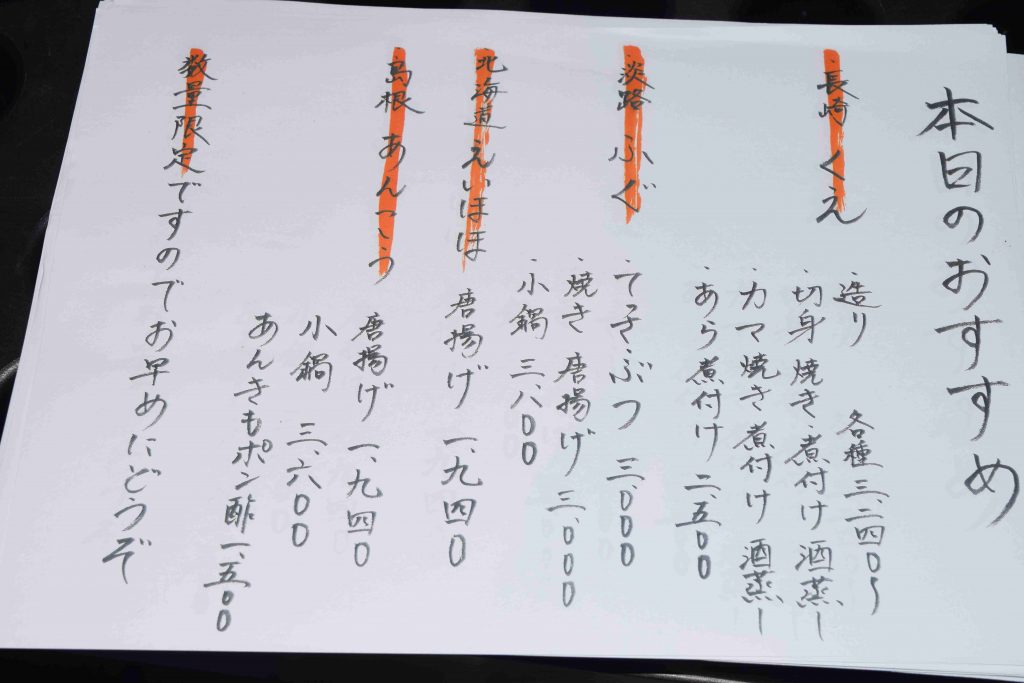 本日のおすすめ
・長崎 くえ
・造り 各種 三、二四〇〜
・切身 焼き・煮付け 酒蒸し
・カマ 焼き 煮付け 酒蒸し
・あら煮付け 二、五〇〇
・淡路 ふぐ
・てっさ ぶつ 三、〇〇〇
・焼き 唐揚げ 三、〇〇〇
・小鍋 三、八〇〇
・北海道 えいほほ
唐揚げ 一、九四〇
・島根 あんこう
唐揚げ 一、九四〇
小鍋 三、六〇〇
あんきもポン酢 一、五〇〇
数量限定ですのでお早めにどうぞ